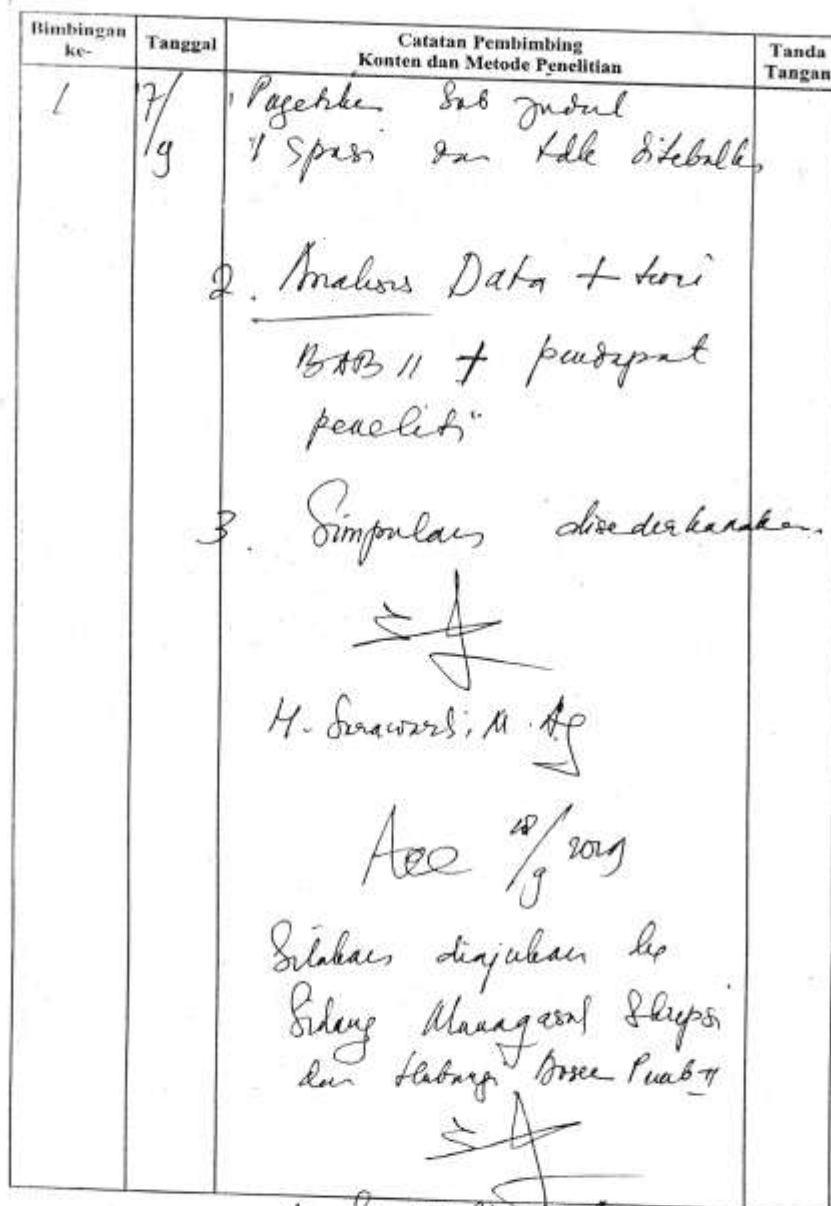 Bimbingan ke-
Tanggal
Catatan Pembimbing
Konten dan Metode Penelitian
Tanda Tangan
1
17/9
1 sub judul
1 spasi dan tdk ditebalkan
2. Analisis Data + teori
BAB II + pendapat
peneliti
3. Simpulan disederhanakan.
H. M. Ag
Acc 18/9 2019
Silakan diajukan ke
Sidang Munaqasah Skripsi
dan Hubungi Dosen Pemb II